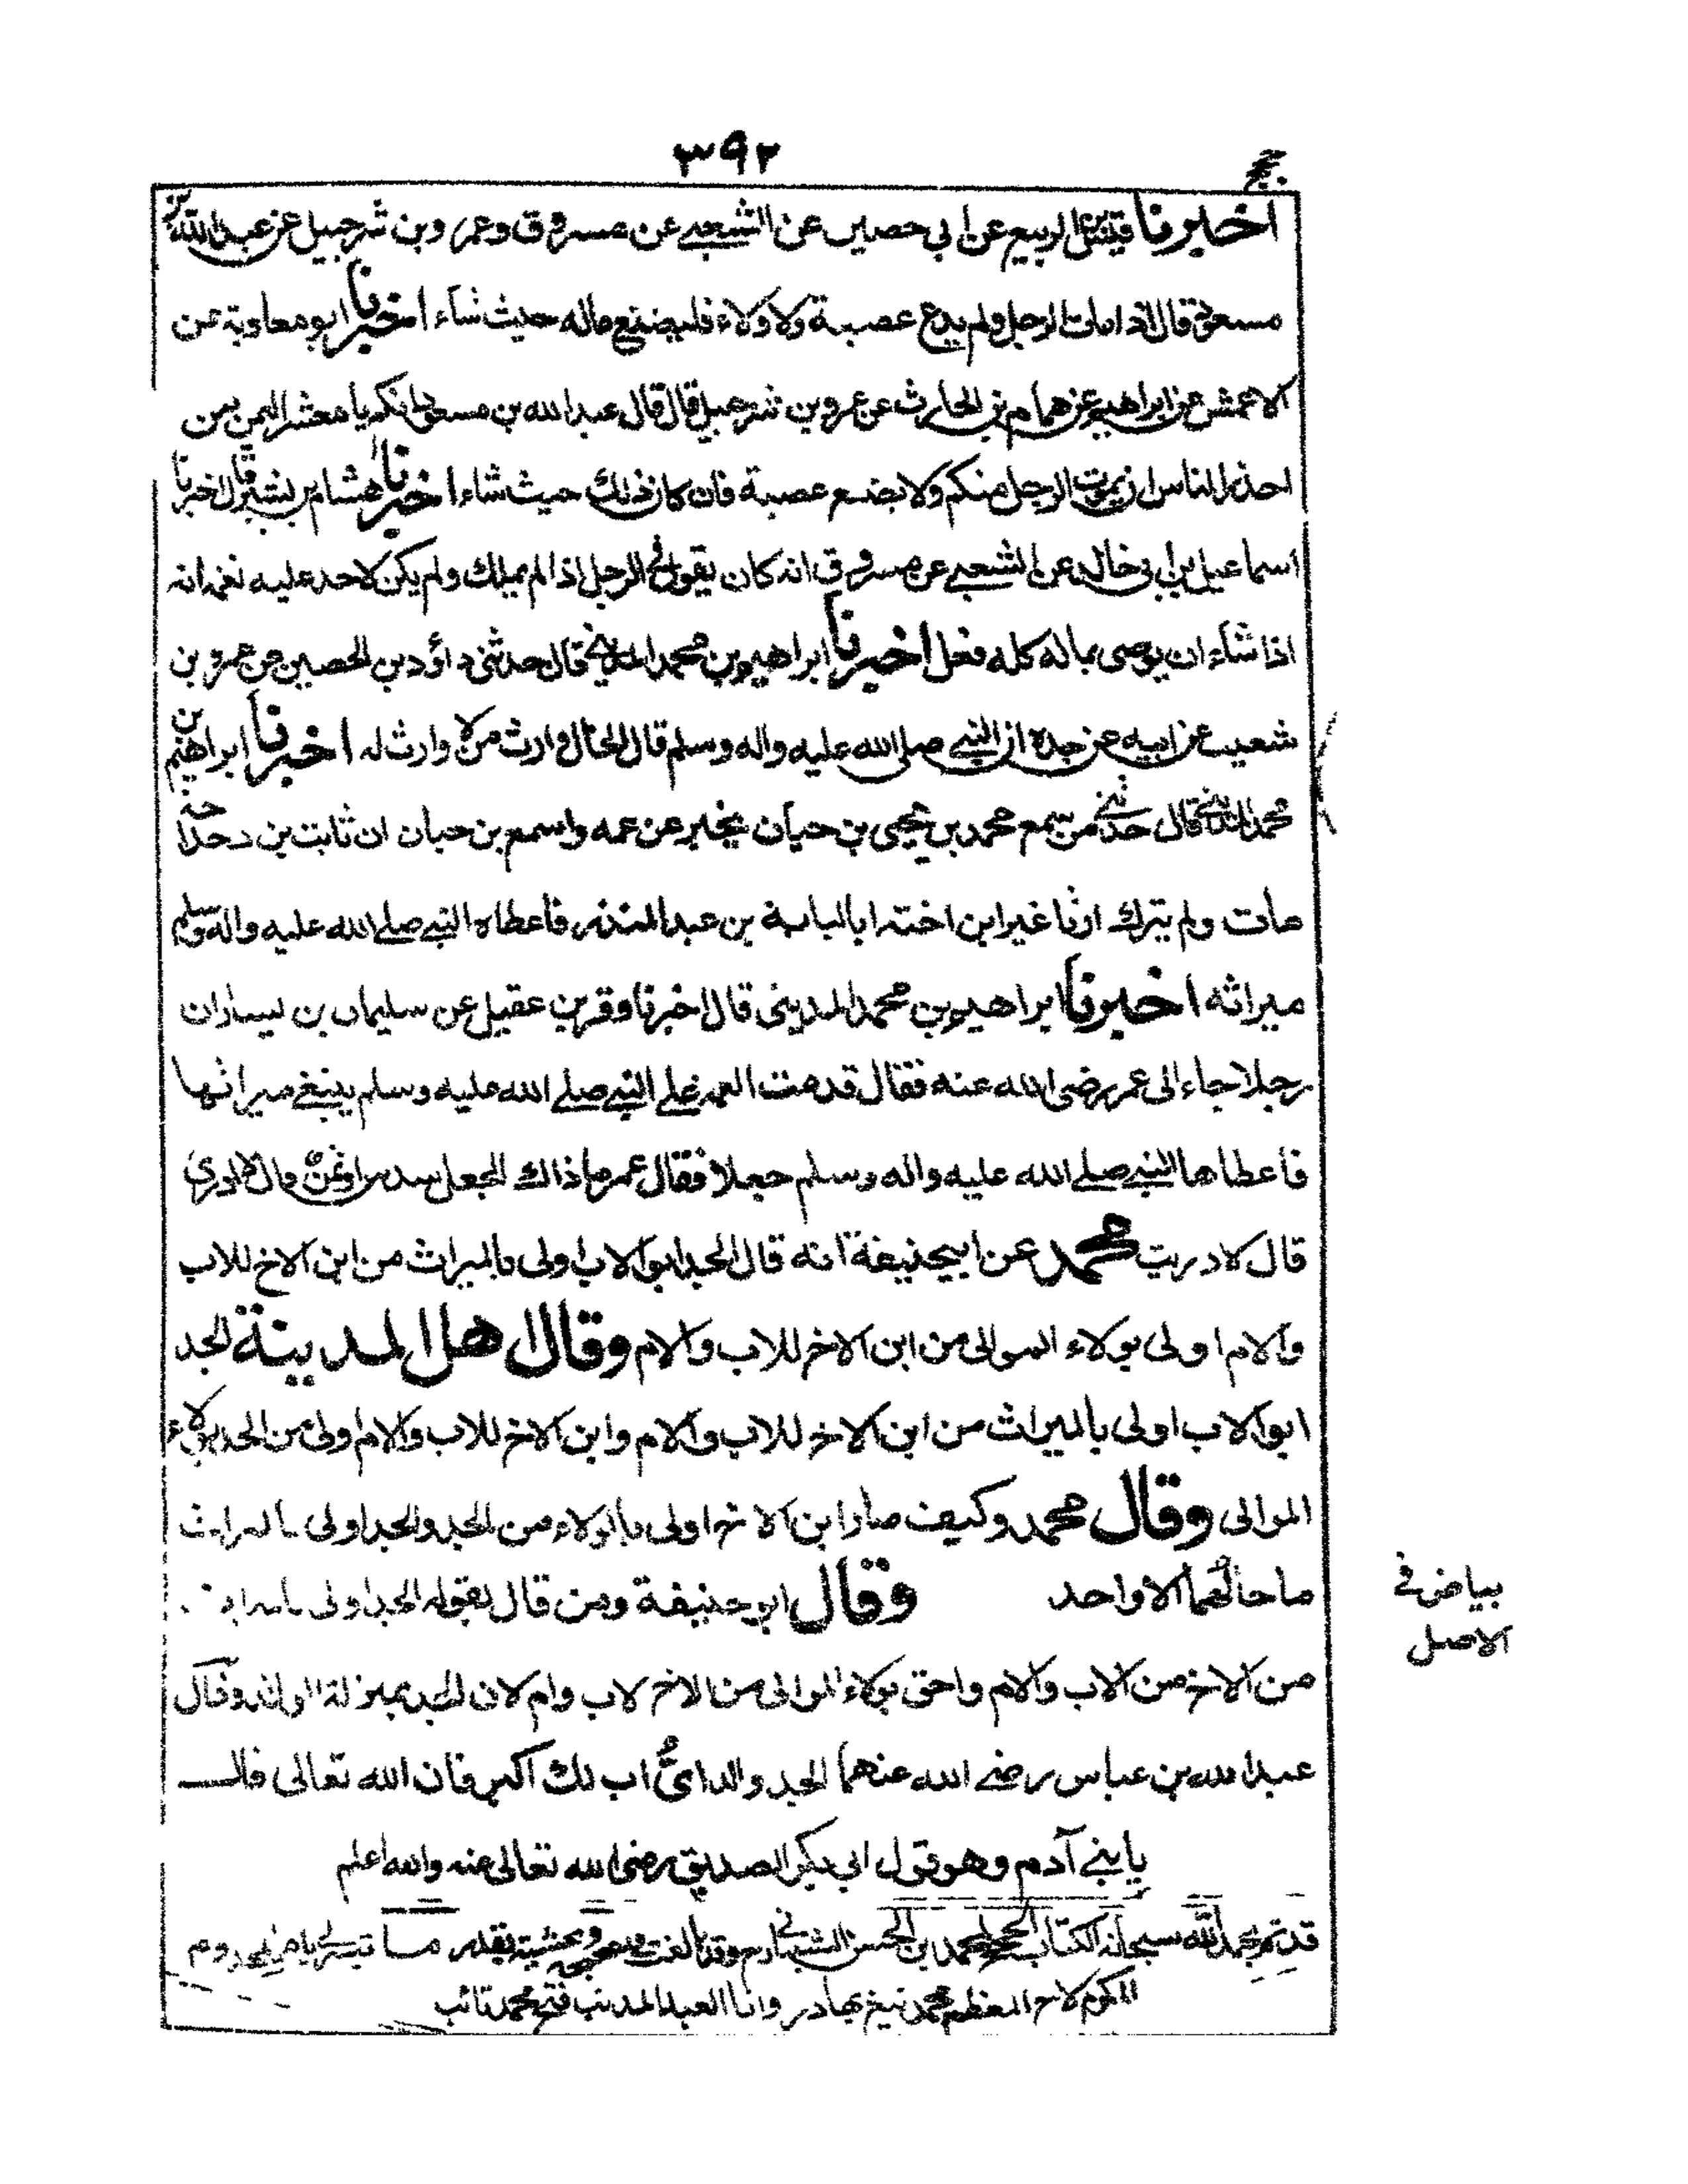 ٣٩٢
اخبرنا قيس بن الربيع عن ابي حصين عن الشعبي عن مسروق وعمرو بن شرحبيل عن عبدالله بن
مسعود قال اذا مات الرجل ولم يدع عصبة ولا ولاء فليضع ماله حيث شاء اخبرنا ابو معاوية عن
الاعمش عن ابراهيم عن همام بن الحارث عن عمرو بن شرحبيل قال قال عبدالله بن مسعود انكم يا معشر اليمن من
احذر الناس ان يموت الرجل منكم ولا يضع عصبة فان كان ذلك حيث شاء اخبرنا هشام بن بشير قال اخبرنا
اسماعيل بن ابي خالد عن الشعبي عن مسروق انه كان يقول في الرجل اذا لم يملك ولم يكن لاحد عليه نغم انه
اذا شاء ان يوصى بماله كله فعل اخبرنا ابراهيم بن محمد المديني قال حدثني داؤد بن الحصين عن عمرو بن
شعيب عن ابيه عن جده ان النبي صلى الله عليه واله وسلم قال الخال وارث من لا وارث له اخبرنا ابراهيم بن
محمد المديني قال حدثني من سمع محمد بن يحيى بن حيان يخبر عن عمه واسمع بن حبان ان ثابت بن دحداحة
مات ولم يترك ارثا غير ابن اخته ابا لبابة بن عبد المنذر فاعطاه النبي صلے الله عليه واله وسلم
ميراثه اخبرنا ابراهيم بن محمد المديني قال اخبرنا وقر بن عقيل عن سليمان بن يسار ان
رجلا جاء الى عمر رضى الله عنه فقال قدمت العمة على النبي صلے الله عليه وسلم يبتغي ميراثها
فاعطاها النبي صلے الله عليه واله وسلم جعلا فقال عمر ما ذاك الجعل سدس او ثمن قال لا ادري
قال لا دريت محمد عن ابيحنيفة انه قال الجد ابو الاب اولى بالميراث من ابن الاخ للاب
والام اولى بولاء الموالى من ابن الاخ للاب والام وقال اهل المدينة الجد
ابو الاب اولى بالميراث من ابن الاخ للاب والام وابن الاخ للاب والام اولى من الجد بولاء
الموالى وقال محمد وكيف صار ابن الاخ اولى بالولاء من الجد والجد اولى بالميراث
ما حالهما الا واحد وقال ابو حنيفة ومن قال بقوله الجد اولى بالميراث
من الاخ من الاب والام واحق بولاء الموالى من الاخ لاب وام لان الجد بمنزلة الوالد وقال
عبد الله بن عباس رضے الله عنهما الجد والد اى اب لك اكبر فان الله تعالى قال
يا بني آدم وهو قول ابي بكر الصديق رضى الله تعالى عنه والله اعلم
قد تم بحمد الله سبحانه الكتاب الحجج لمحمد بن الحسن الشيباني بقدر ما تيسر
المكرم المعظم محمد بهادر وانا العبد المذنب فتح محمد تائب
بياض في
الاصل